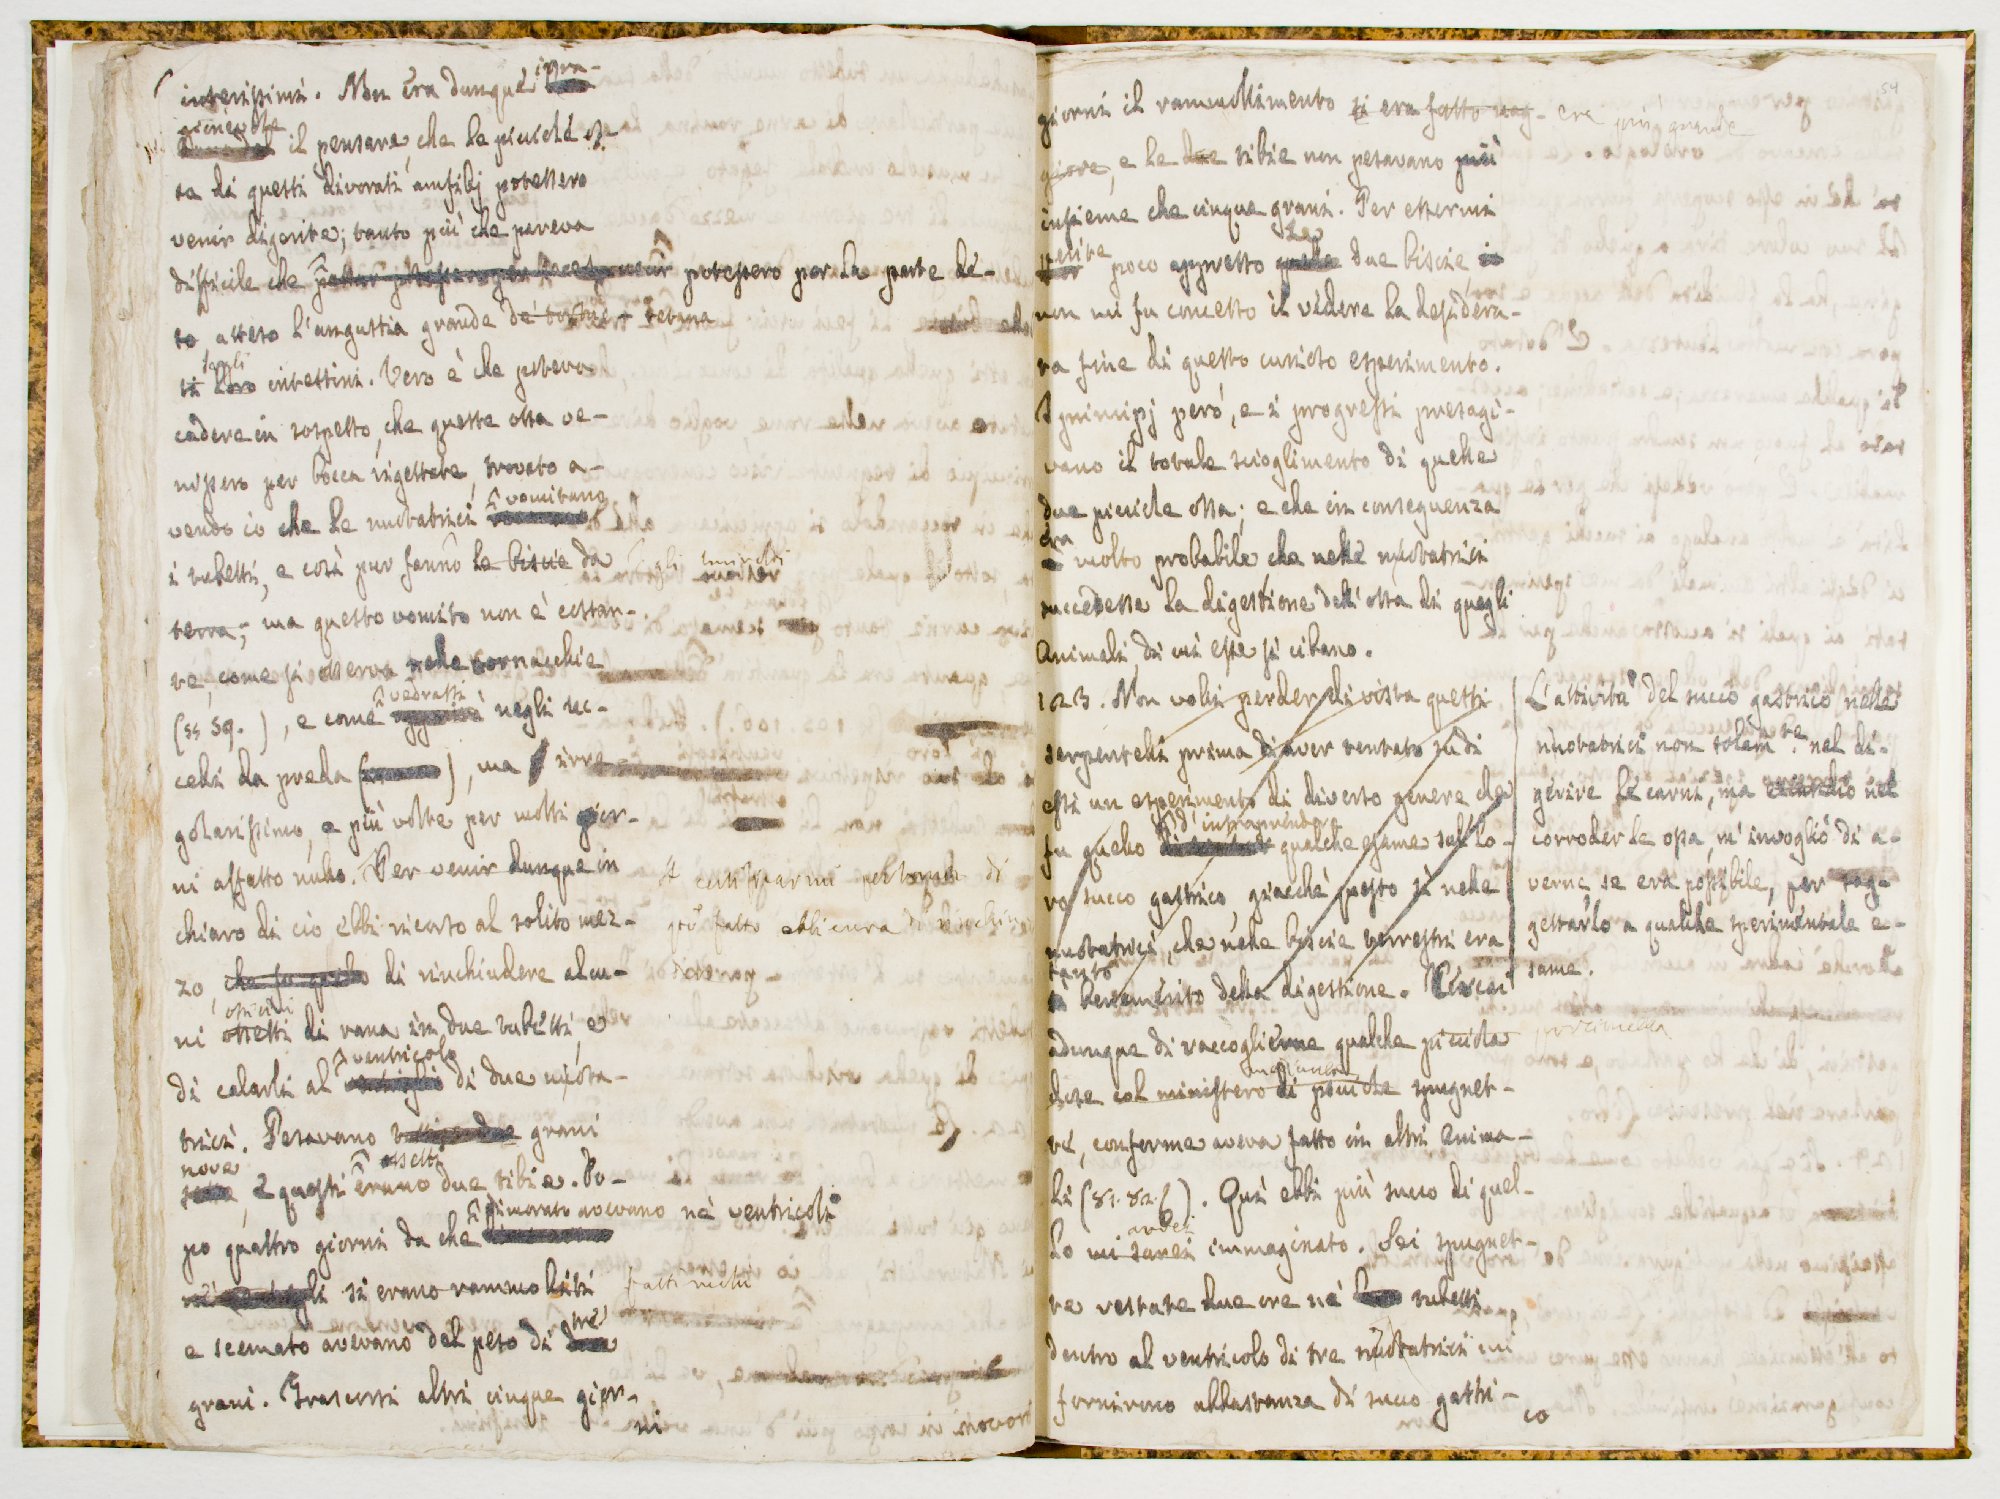 intestini. Non era dunque irra-
gionevole il pensare, che le picciole os-
sa di questi divorati amfibj potessero
venir digerite; tanto più che pareva
difficile che uscir potessero per la parte de-
to atteso l'angustia grande de' tortuo-
si loro intestini. Vero è che poteva
cadere in sospetto, che queste ossa ve-
nissero per bocca rigettate, trovato a-
vendo io che le nuotatrici vomitano
i tubetti, e così pur fanno le biscie da
terra; ma questo vomito non è costan-
te, come si osserva nelle cornacchie
(ss 59. ), e come vedrassi negli uc-
celli da preda ( ), ma irre-
golarissimo, e più volte per molti gior-
ni affatto nullo. Per venir dunque in
chiaro di ciò ebbi ricorso al solito mez-
zo, di rinchiudere alcu-
ni ossicini ossetti di rana in due tubetti, e
di calarli al ventricolo di due nuota-
trici. Pesavano grani
nove, e questi ossetti erano due tibie. Do-
po quattro giorni da che dimorato avevano ne' ventricoli
si erano rammolliti fatti molli
e scemato avevano del peso di tre
grani. Trascorsi altri cinque gior-
ni
54
giorni il rammollimento si era fatto mag- era più grande
giore, e le due tibie non pesavano più
insieme che cinque grani. Per essermi
perite poco appresso le due biscie
non mi fu concesso il vedere la desidera-
ta fine di questo curioso esperimento.
I principj però, e i progressi presagi-
vano il totale scioglimento di quelle
due picciole ossa; e che in conseguenza
era molto probabile che nelle nuotatrici
succedesse la digestione dell'ossa di quegli
Animali di cui esse si cibano.
123. Non volli perder di vista questi
serpentelli prima di aver tentato su di
essi un esperimento di diverso genere che
fu quello d'intraprendere qualche esame sul lo-
ro succo gastrico, giacchè posto sì nelle
nuotatrici, che nelle biscie terrestri era
tanto benemerito della digestione. Cercai
adunque di raccoglierne qualche picciola porzioncella
dose col ministero di picciole spugnet-
te, conforme aveva fatto in altri Anima-
li (81. 82. ). Qui ebbi più succo di quel-
lo mi sarei avrei immaginato. Sei spugnet-
te restate due ore ne' tubetti
dentro al ventricolo di tre nuotatrici mi
fornirono abbastanza di succo gastri-
co
L'attività del succo gastrico nelle
nuotatrici non solam.te nel di-
gerire le carni, ma nel
corroder le ossa, m'invogliò di a-
verne se era possibile, per sog-
gettarlo a qualche sperimentale e-
same.